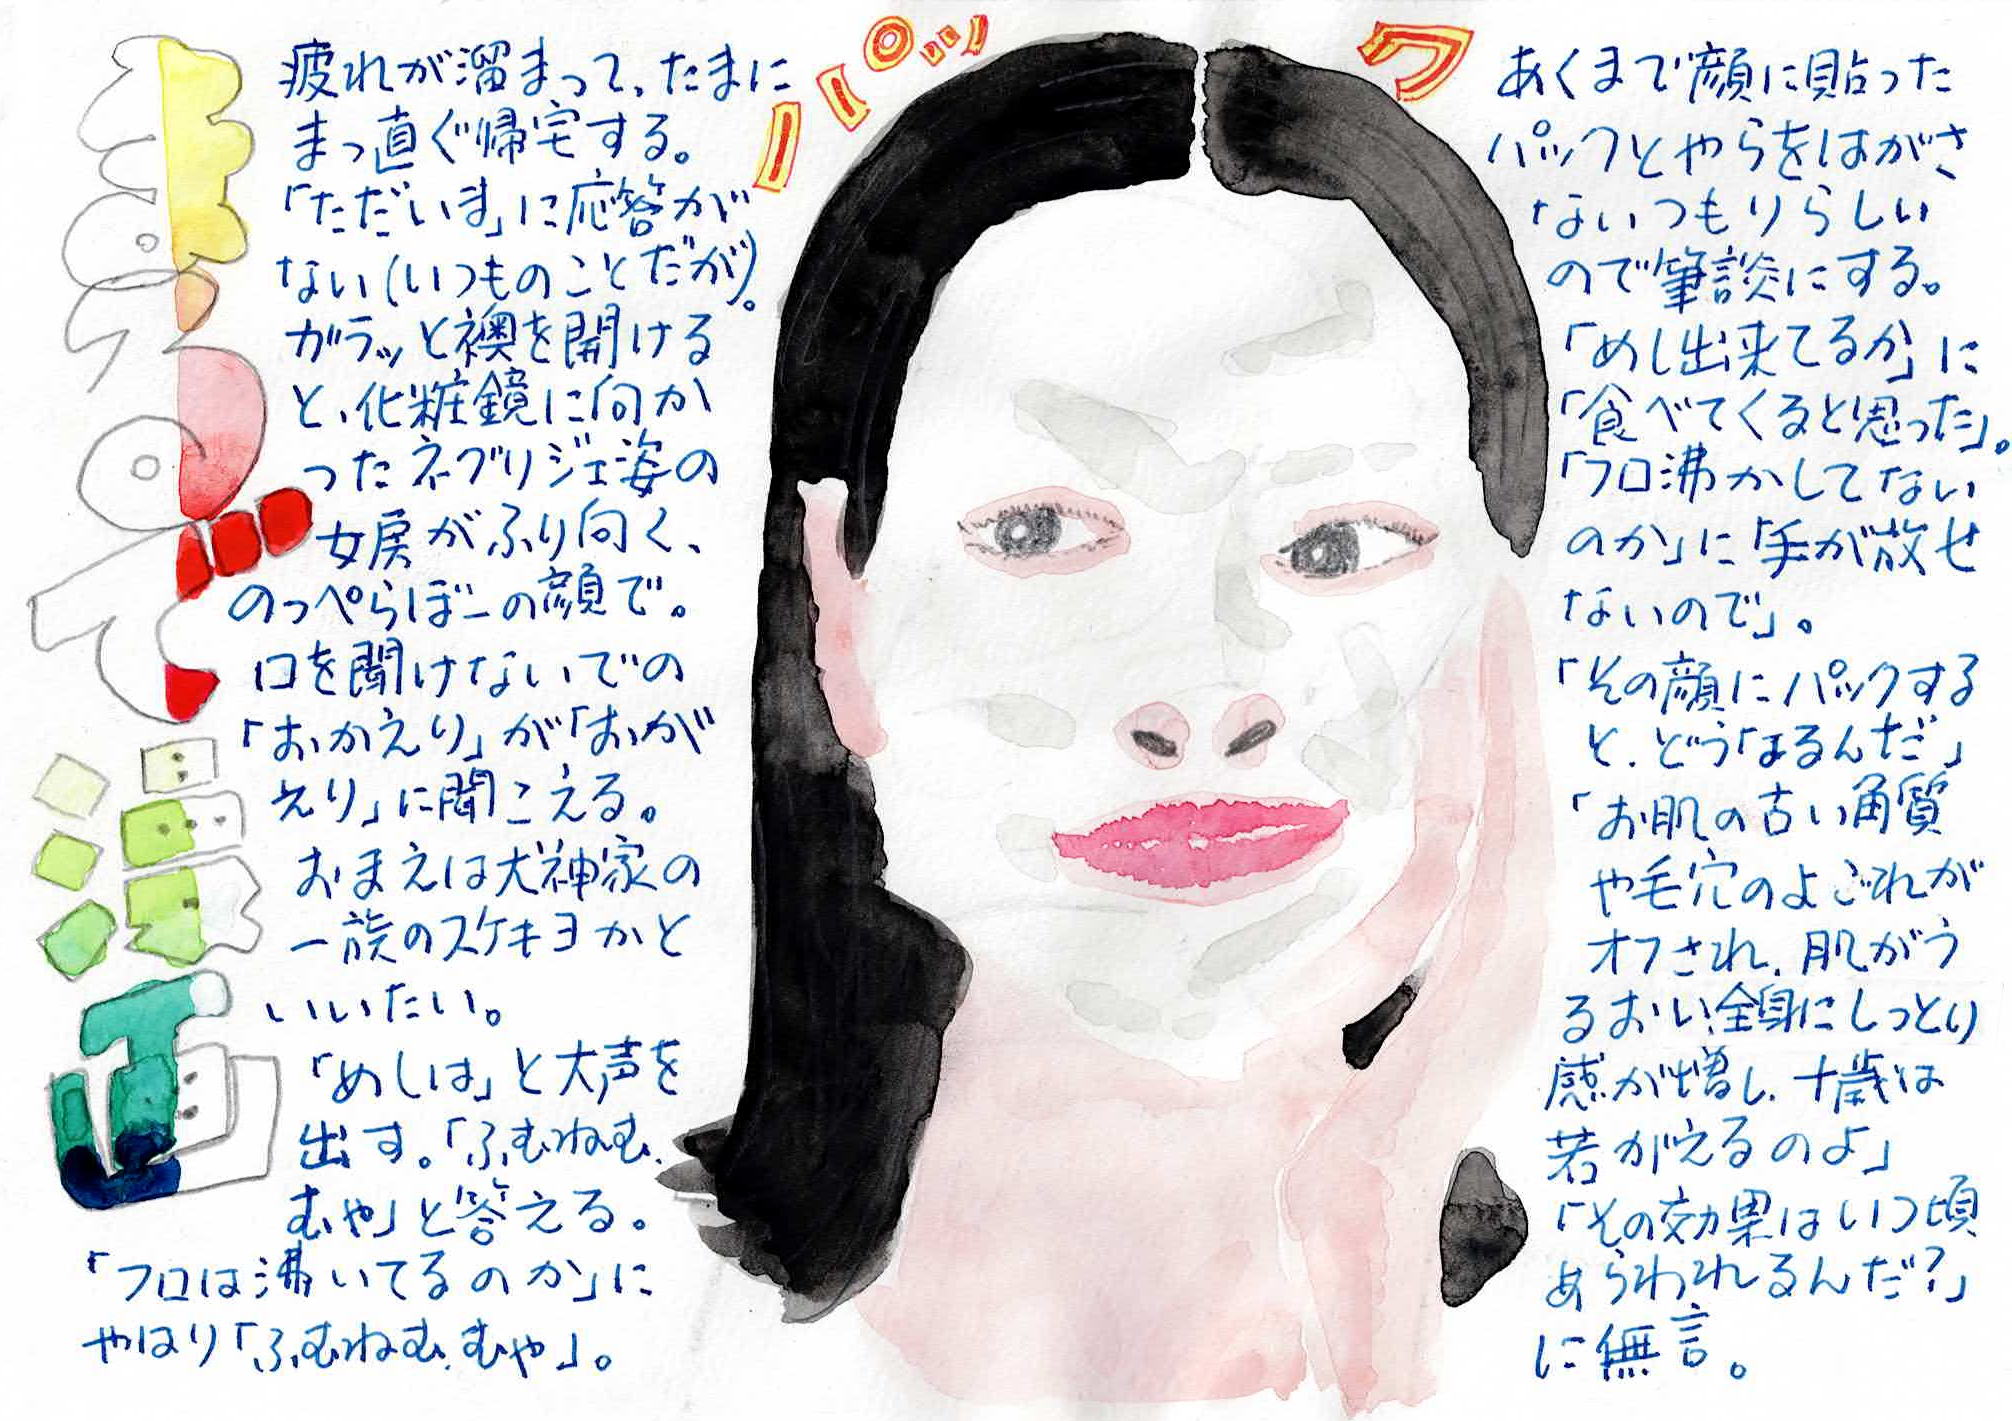 パパッック
疲れが溜まって、たまに
まっ直ぐ帰宅する。
「ただいま」に応答が
ない(いつものことだが)。
ガラッと襖を開ける
と、化粧鏡に向か
ったネグリジェ姿の
女房がふり向く、
のっぺらぼーの顔で。
口を開けないでの
「おかえり」が「おがが
えり」に聞こえる。
おまえは犬神家の
一族のスケキヨかと
いいたい。
「めしは」と大声を
出す。「ふむねむ、
むや」と答える。
「フロは沸いてるのか」に
やはり「ふむねむ、むや」。
あくまで顔に貼った
パックとやらをはがさ
ないつもりらしい
ので筆談にする。
「めし出来てるか」に
「食べてくると思った」。
「フロ沸かしてない
のか」に「手が放せ
ないので」。
「その顔にパックする
と、どうなるんだ」
「お肌の古い角質
や毛穴のよごれが
オフされ、肌がう
るおい、全身にしっとり
感が増し、十歳は
若がえるのよ」
「その効果はいつ頃
あらわれるんだ?」
に無言。